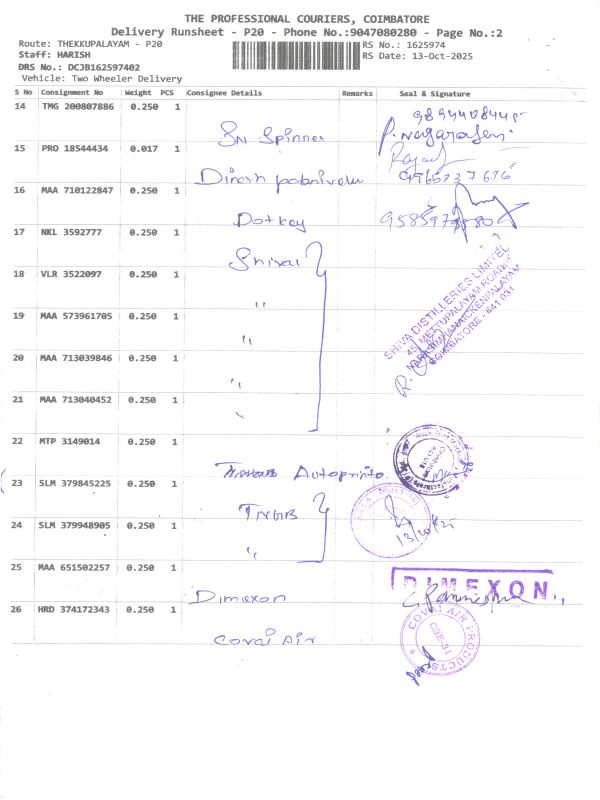 THE PROFESSIONAL COURIERS, COIMBATORE
Delivery Runsheet - P20 - Phone No.:9047080280 - Page No.:2
Route: THEKKUPALAYAM - P20
RS No.: 1625974
Staff: HARISH
RS Date: 13-Oct-2025
DRS No.: DCJB162597402
Vehicle: Two Wheeler Delivery
S No Consignment No Weight PCS Consignee Details Remarks Seal & Signature
14 TMG 200807886 0.250 1
Sri Spinner
P. Nagarajen
15 PRO 18544434 0.017 1
Dinesh
16 MAA 710122847 0.250 1
Dotkey
17 NKL 3592777 0.250 1
Shivai
18 VLR 3522097 0.250 1
"
SHIVA DISTILLERIES LIMITED
METTUPALAYAM ROAD
COIMBATORE - 641 031
19 MAA 573961705 0.250 1
"
20 MAA 713039846 0.250 1
"
21 MAA 713040452 0.250 1
"
22 MTP 3149014 0.250 1
Autoprinto
23 SLM 379845225 0.250 1
TNGB
24 SLM 379948905 0.250 1
"
13/10/25
25 MAA 651502257 0.250 1
Dimexon
DIMEXON
26 HRD 374172343 0.250 1
Covai Air
COVAI AIR PRODUCTS
CBE-31